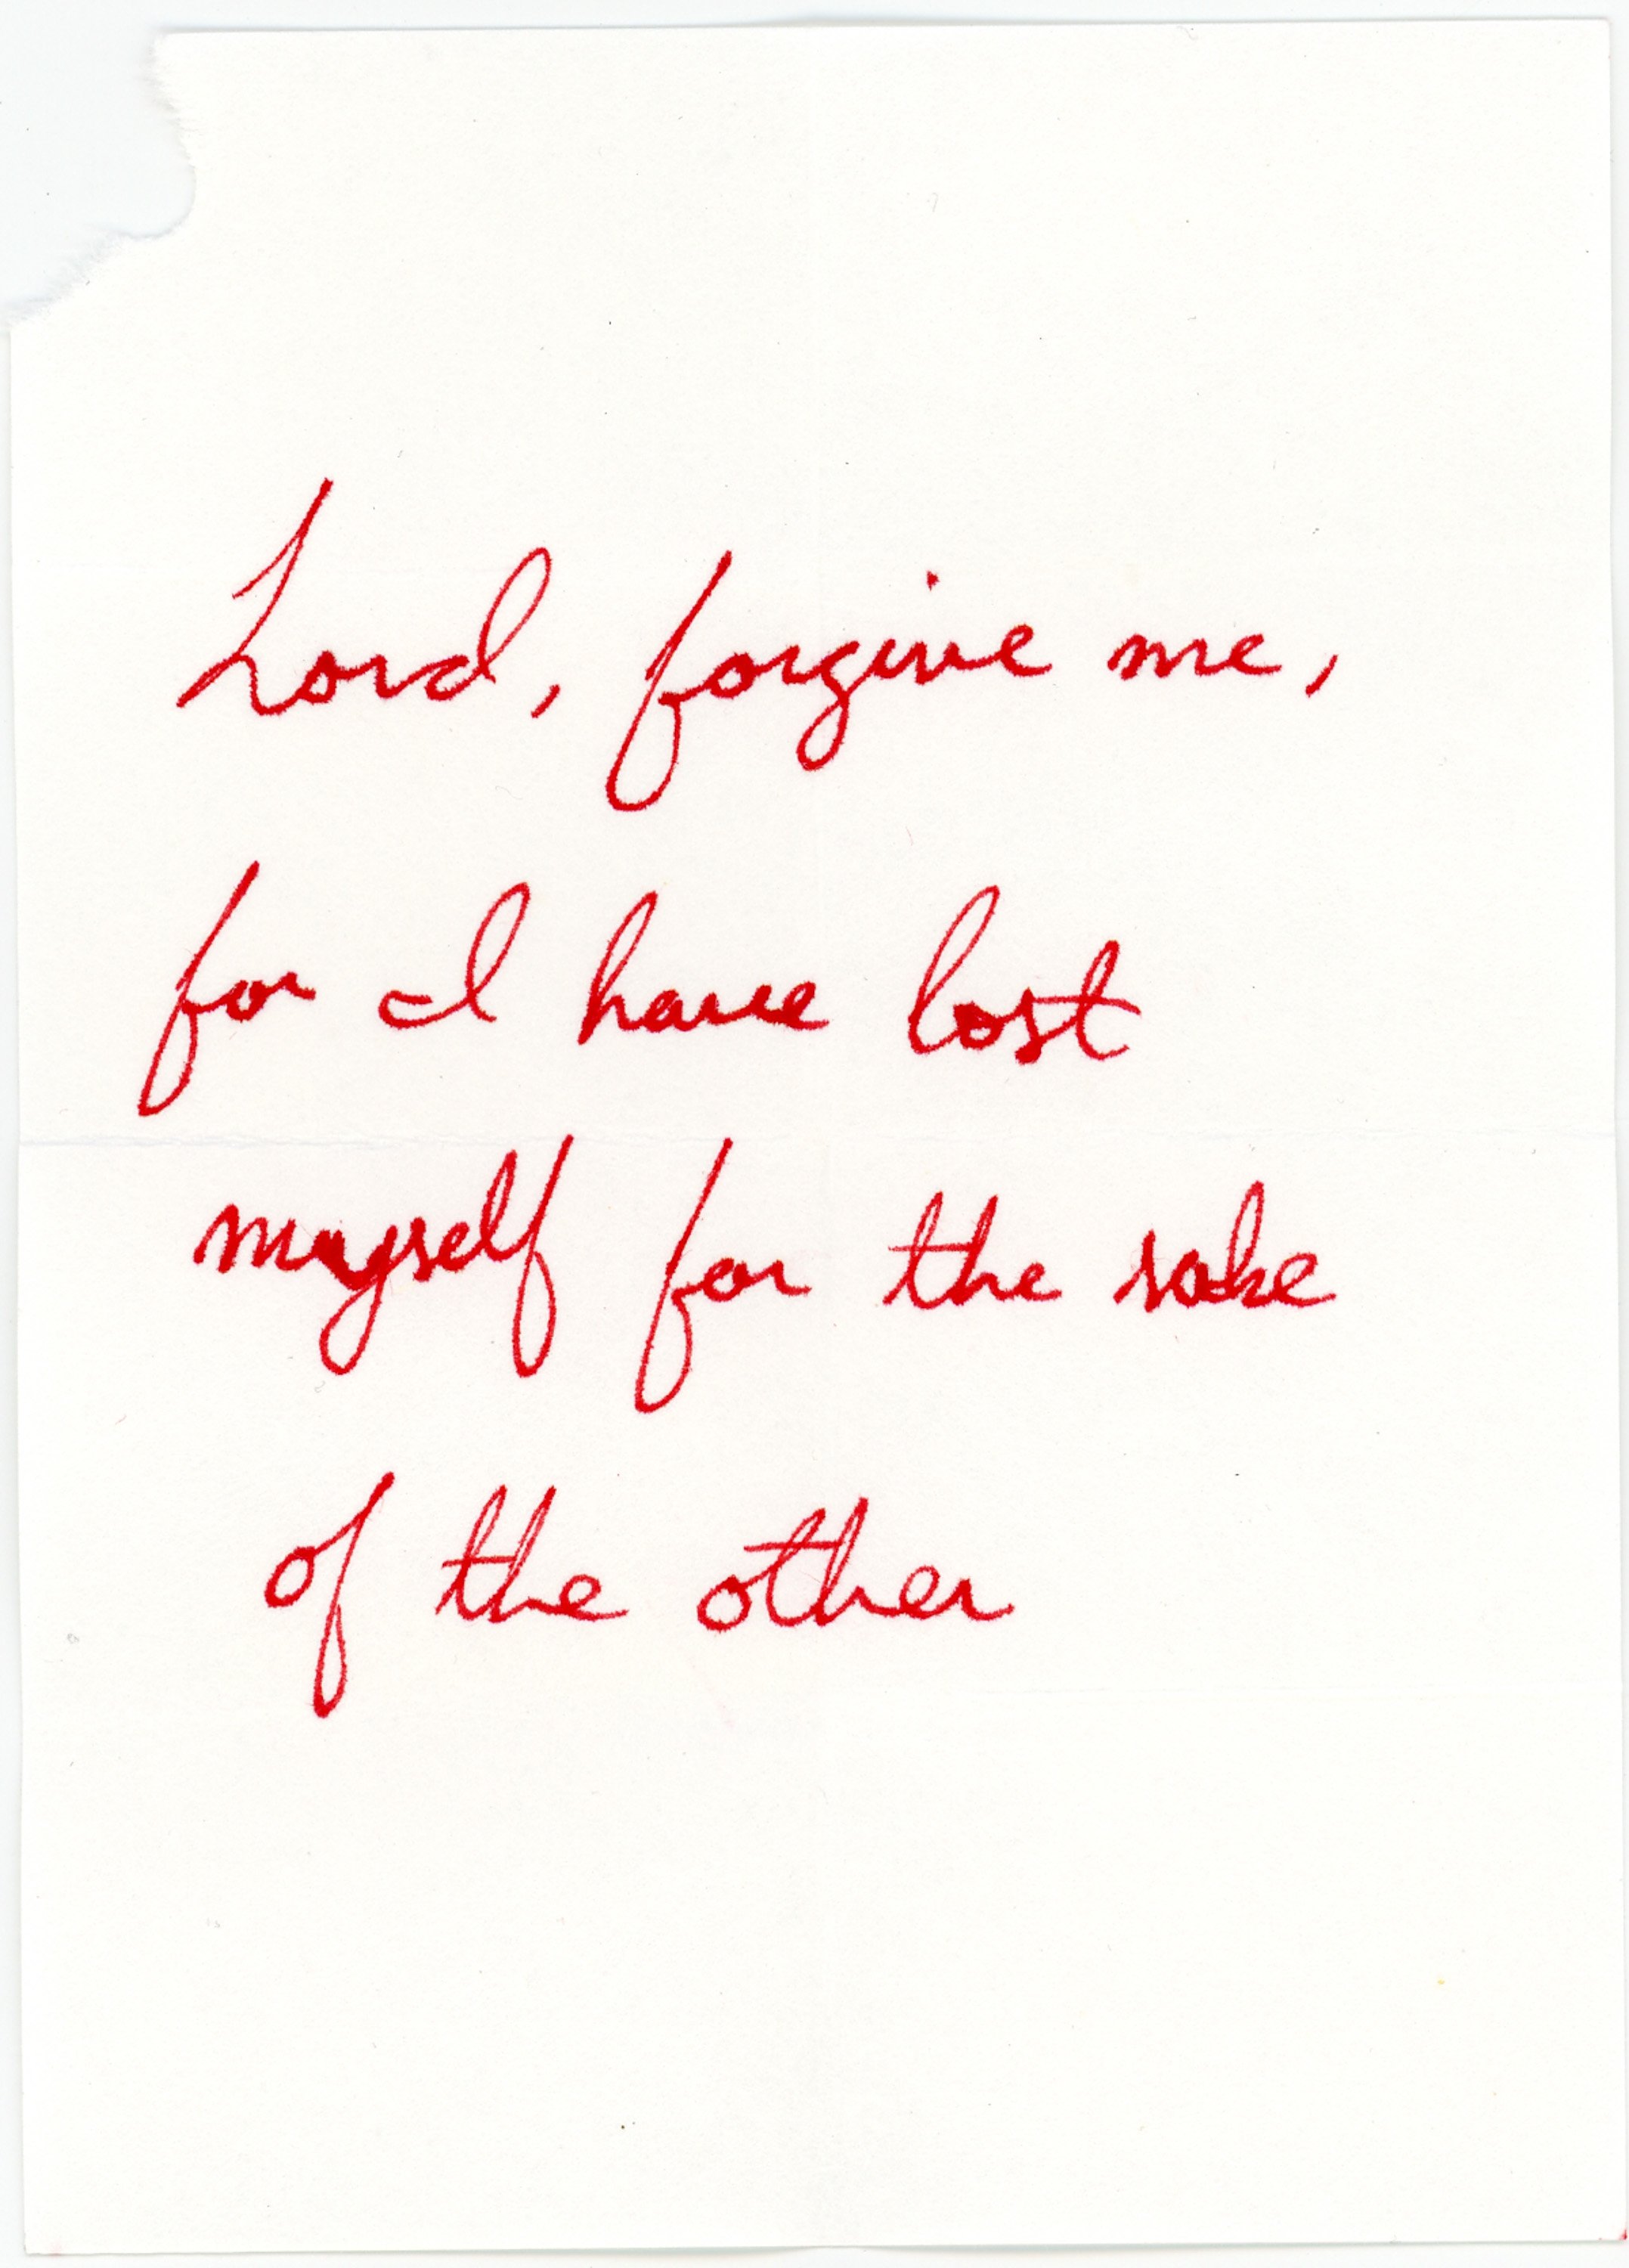 Lord, forgive me,
for I have lost
myself for the sake
of the other